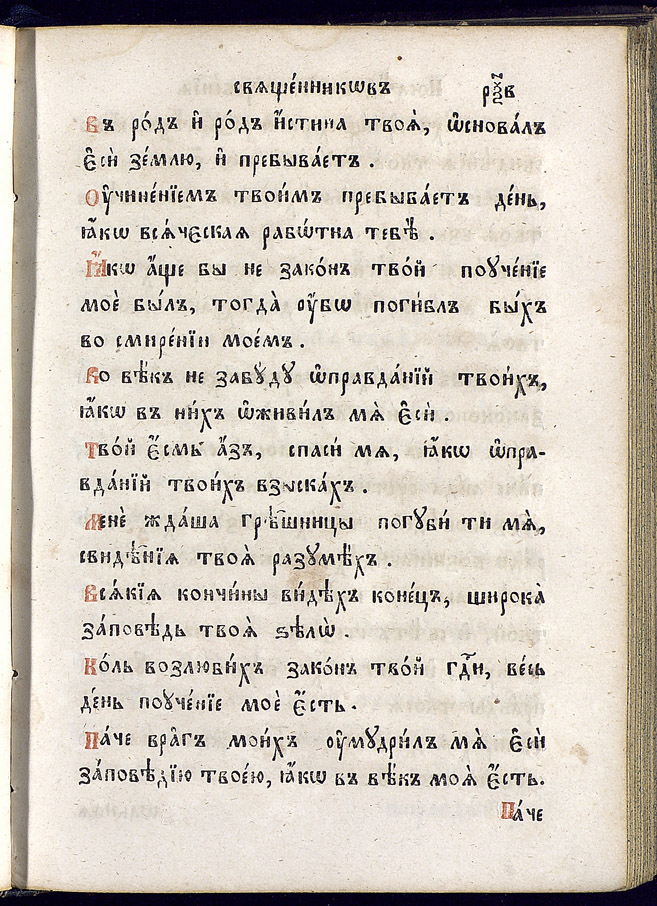 свѧще́нникѡвъ р҃ѯв
Въ ро́дъ и҆ ро́дъ и҆́стина твоѧ̀, ѡ҆снова́лъ
є҆сѝ зе́млю, и҆ пребыва́етъ .
Оу҆чине́нїемъ твои́мъ пребыва́етъ де́нь,
ꙗ҆́кѡ всѧ́ческаѧ рабѡ́тна тебѣ̀ .
Ꙗ҆́кѡ а҆́ще бы не зако́нъ тво́й поꙋче́нїе
моѐ бы́лъ, тогда̀ оу҆́бѡ поги́блъ бы́хъ
во смире́нїи мое́мъ .
Во вѣ́къ не забꙋ́дꙋ ѡ҆правда́нїй твои́хъ,
ꙗ҆́кѡ въ ни́хъ ѡ҆живи́лъ мѧ̀ є҆сѝ .
Тво́й є҆́смь а҆́зъ, спаси́ мѧ, ꙗ҆́кѡ ѡ҆пра-
вда́нїй твои́хъ взыска́хъ .
Менѐ жда́ша грѣ́шницы погꙋби́ ти мѧ̀,
свидѣ́нїѧ твоѧ̀ разꙋмѣ́хъ .
Всѧ́кїѧ кончи́ны ви́дѣхъ коне́цъ, широка̀
за́повѣдь твоѧ̀ ѕѣлѡ̀ .
Ко́ль возлюби́хъ зако́нъ тво́й гдⷭ҇и, ве́сь
де́нь поꙋче́нїе моѐ є҆́сть .
Па́че вра̑гъ мои́хъ оу҆мꙋдри́лъ мѧ̀ є҆сѝ
за́повѣдїю твое́ю, ꙗ҆́кѡ въ вѣ́къ моѧ̀ є҆́сть.
Па́че